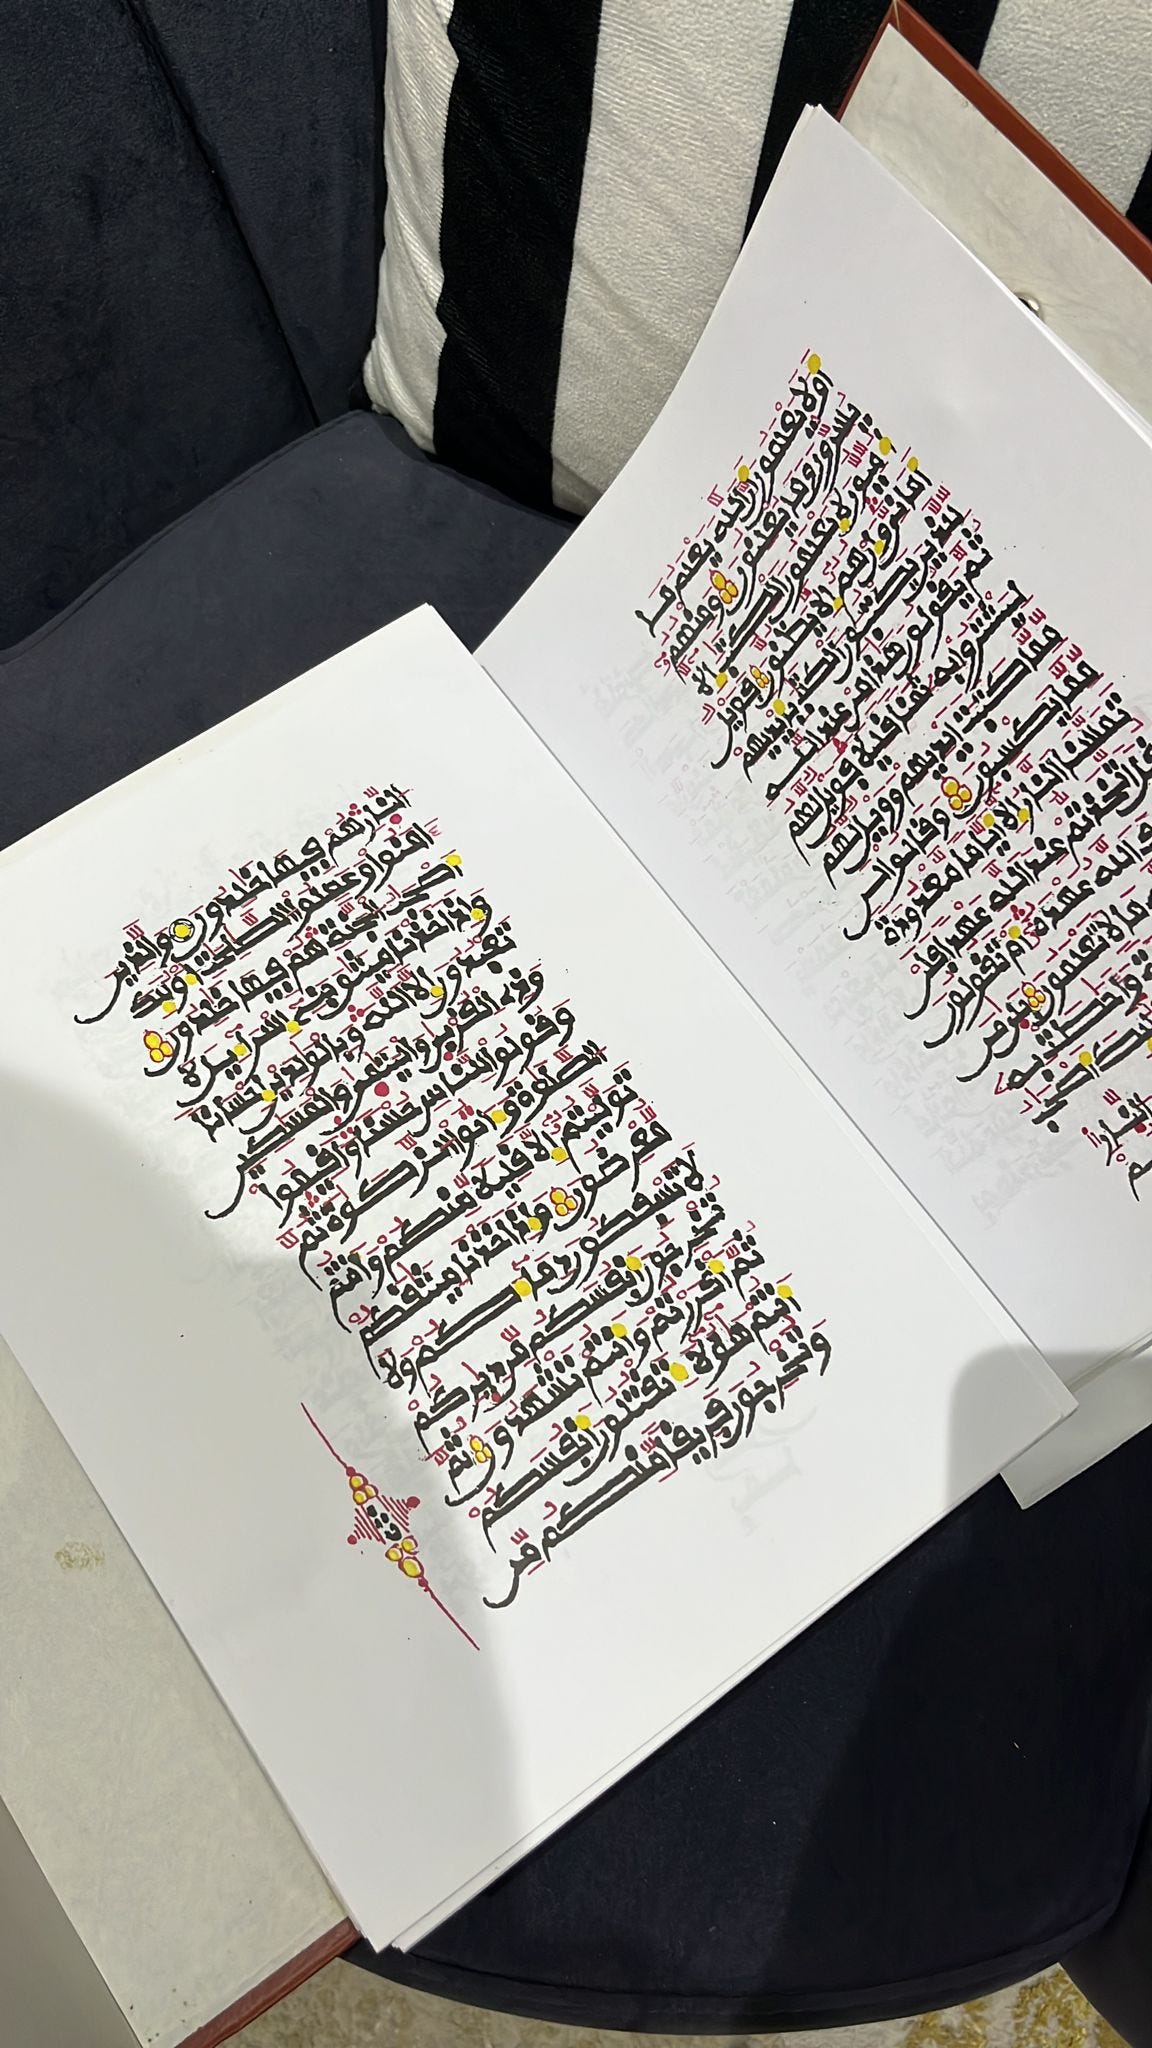 اولا يعلمون ان الله يعلم ما
يسرون وما يعلنون ومنهم
اميون لا يعلمون الكتب الا
اماني وان هم الا يظنون فويل
للذين يكتبون الكتب بايديهم
ثم يقولون هذا من عند الله
ليشتروا به ثمنا قليلا فويل لهم
مما كتبت ايديهم وويل لهم
مما يكسبون وقالوا لن
تمسنا النار الا اياما معدودة
اتخذتم عند الله عهدا فلن
الله عهده ام تقولون
ما لا تعلمون بلى من
واحطت به
النار هم فيها خلدون والذين
امنوا وعملوا الصلحت اوليك
اصحب الجنة هم فيها خلدون
واذ اخذنا ميثق بني اسرايل لا
تعبدون الا الله وبالولدين احسانا
وذي القربى واليتمى والمسكين
وقولوا للناس حسنا واقيموا
الصلوة واتوا الزكوة ثم
توليتم الا قليلا منكم وانتم
معرضون واذ اخذنا ميثقكم
لا تسفكون دماكم ولا
تخرجون انفسكم من ديركم
ثم اقررتم وانتم تشهدون ثم
انتم هولا تقتلون انفسكم
وتخرجون فريقا منكم من